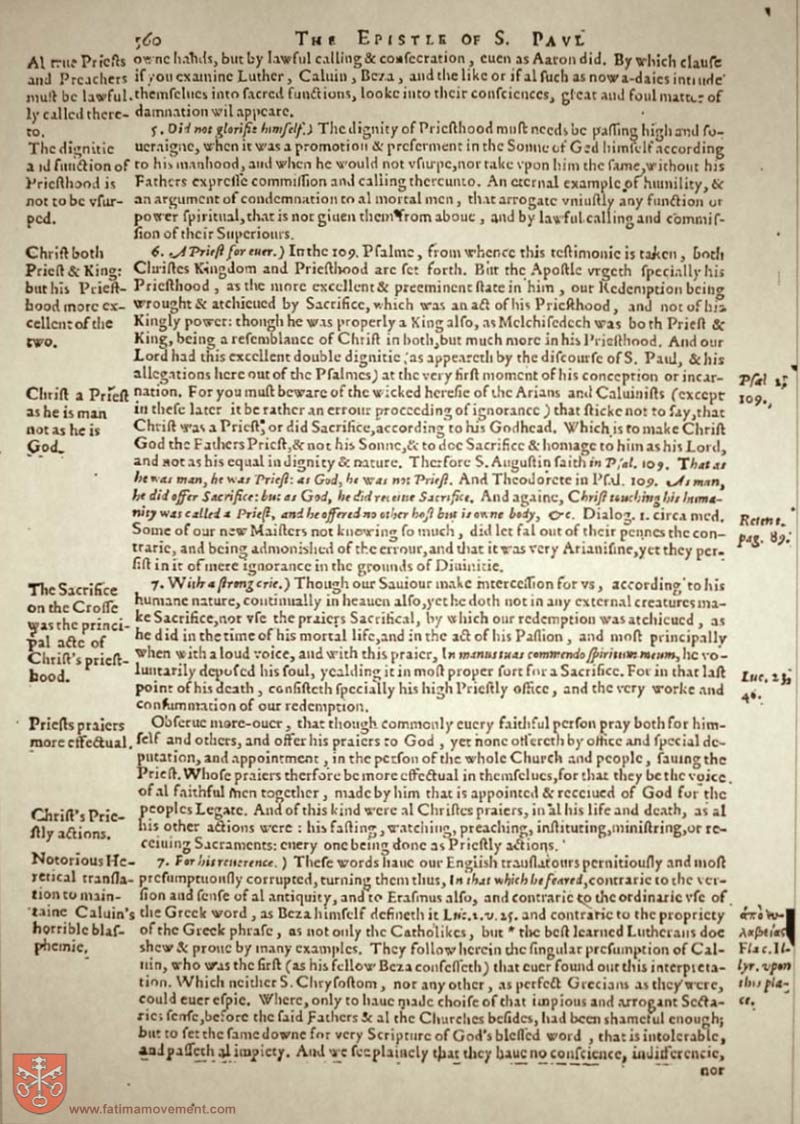 360
THE EPISTLE OF S. PAVL
Al true Prieſts
and Preachers
muſt be lawful.
ly called there-
to.
The dignitie
and function of
Prieſthood is
not to be vſur-
ped.
Chriſt both
Prieſt & King:
but his Prieſt-
hood more ex-
cellent of the
two.
Chriſt a Prieſt
as he is man
not as he is
God.
The Sacrifice
on the Croſſe
was the princi-
pal acte of
Chriſt's prieſt-
hood.
Prieſts praiers
more effectual.
Chriſt's Prie-
ſtly actions.
Notorious He-
retical tranſla-
tion to main-
taine Caluin's
horrible blaſ-
phemie,
owne hands, but by lawful calling & conſecration, euen as Aaron did. By which clauſe
if you examine Luther, Caluin, Beza, and the like or if al ſuch as now a-daies intrude
themſelues into ſacred functions, looke into their conſciences, great and foul matter of
damnation wil appeare.
5. Did not glorifie himſelf.) The dignity of Prieſthood muſt needs be paſſing high and ſo-
ueraigne, when it was a promotion & preferment in the Sonne of God himſelf according
to his manhood, and when he would not vſurpe, nor take vpon him the ſame, without his
Fathers expreſſe commiſſion and calling thereunto. An eternal example of humility, &
an argument of condemnation to al mortal men, that arrogate vniuſtly any function or
power ſpiritual, that is not giuen them from aboue, and by lawful calling and commiſ-
ſion of their Superiours.
6. A Prieſt for euer.) In the 109. Pſalme, from whence this teſtimonie is taken, both
Chriſtes Kingdom and Prieſthood are ſet forth. But the Apoſtle vrgeth ſpecially his
Prieſthood, as the more excellent & preeminent ſtate in him, our Redemption being
wrought & atchieued by Sacrifice, which was an act of his Prieſthood, and not of his
Kingly power: though he was properly a King alſo, as Melchiſedech was both Prieſt &
King, being a reſemblance of Chriſt in both, but much more in his Prieſthood. And our
Lord had this excellent double dignitie (as appeareth by the diſcourſe of S. Paul, & his
allegations here out of the Pſalmes) at the very firſt moment of his conception or incar-
nation. For you muſt beware of the wicked hereſie of the Arians and Caluiniſts (except
in theſe later it be rather an errour proceeding of ignorance) that ſticke not to ſay, that
Chriſt was a Prieſt, or did Sacrifice, according to his Godhead. Which is to make Chriſt
God the Fathers Prieſt, & not his Sonne, & to doe Sacrifice & homage to him as his Lord,
and not as his equal in dignity & nature. Therfore S. Auguſtin ſaith in Pſal. 109. That as
he was man, he was Prieſt: as God, he was not Prieſt. And Theodorete in Pſal. 109. As man,
he did offer Sacrifice: but as God, he did receiue Sacrifice. And againe, Chriſt touching his huma-
nity was called a Prieſt, and he offered no other hoſt but is owne body, &c. Dialog. 1. circa med.
Some of our new Maiſters not knowing ſo much, did let fal out of their pennes the con-
trarie, and being admoniſhed of the errour, and that it was very Arianiſme, yet they per-
ſiſt in it of mere ignorance in the grounds of Diuinitie.
7. With a ſtrong crie.) Though our Sauiour make interceſſion for vs, according to his
humane nature, continually in heauen alſo, yet he doth not in any external creatures ma-
ke Sacrifice, nor vſe the praiers Sacrifical, by which our redemption was atchieued, as
he did in the time of his mortal life, and in the act of his Paſſion, and moſt principally
when with a loud voice, and with this praier, In manus tuas commendo ſpiritum meum, he vo-
luntarily depoſed his ſoul, yealding it in moſt proper ſort for a Sacrifice. For in that laſt
point of his death, conſiſteth ſpecially his high Prieſtly office, and the very worke and
conſummation of our redemption.
Obſerue more-ouer, that though commonly euery faithful perſon pray both for him-
ſelf and others, and offer his praiers to God, yet none offereth by office and ſpecial de-
putation, and appointment, in the perſon of the whole Church and people, ſauing the
Prieſt. Whoſe praiers therfore be more effectual in themſelues, for that they be the voice
of al faithful men together, made by him that is appointed & receiued of God for the
peoples Legate. And of this kind were al Chriſtes praiers, in al his life and death, as al
his other actions were: his faſting, watching, preaching, inſtituting, miniſtring, or re-
ceiuing Sacraments: euery one being done as Prieſtly actions.
7. For his reuerence.) Theſe words haue our Engliſh tranſlatours pernitiouſly and moſt
preſumptuouſly corrupted, turning them thus, In that which he feared, contrarie to the ver-
ſion and ſenſe of al antiquity, and to Eraſmus alſo, and contrarie to the ordinarie vſe of
the Greek word, as Beza himſelf defineth it Luc. 2. v. 25. and contrarie to the propriety
of the Greek phraſe, as not only the Catholikes, but * the beſt learned Lutherans doe
shew & proue by many examples. They follow herein the ſingular preſumption of Cal-
uin, who was the firſt (as his fellow Beza confeſſeth) that euer found out this interpreta-
tion. Which neither S. Chryſoſtom, nor any other, as perfect Grecians as they were,
could euer eſpie. Where, only to haue made choiſe of that impious and arrogant Secta-
ries ſenſe, before the ſaid Fathers & al the Churches beſides, had been shameful enough;
but to ſet the ſame downe for very Scripture of God's bleſſed word, that is intolerable,
and paſſeth al impiety. And we ſee plainely that they haue no conſcience, indifferencie,
nor
Pſal 2,
109.
Retent.
pag. 89.
Luc. 23,
46.
ἀπὸ τῆς ευ-
λαβείας
Flac. Il-
lyr. vpon
this pla-
ce.
www.fatimamovement.com